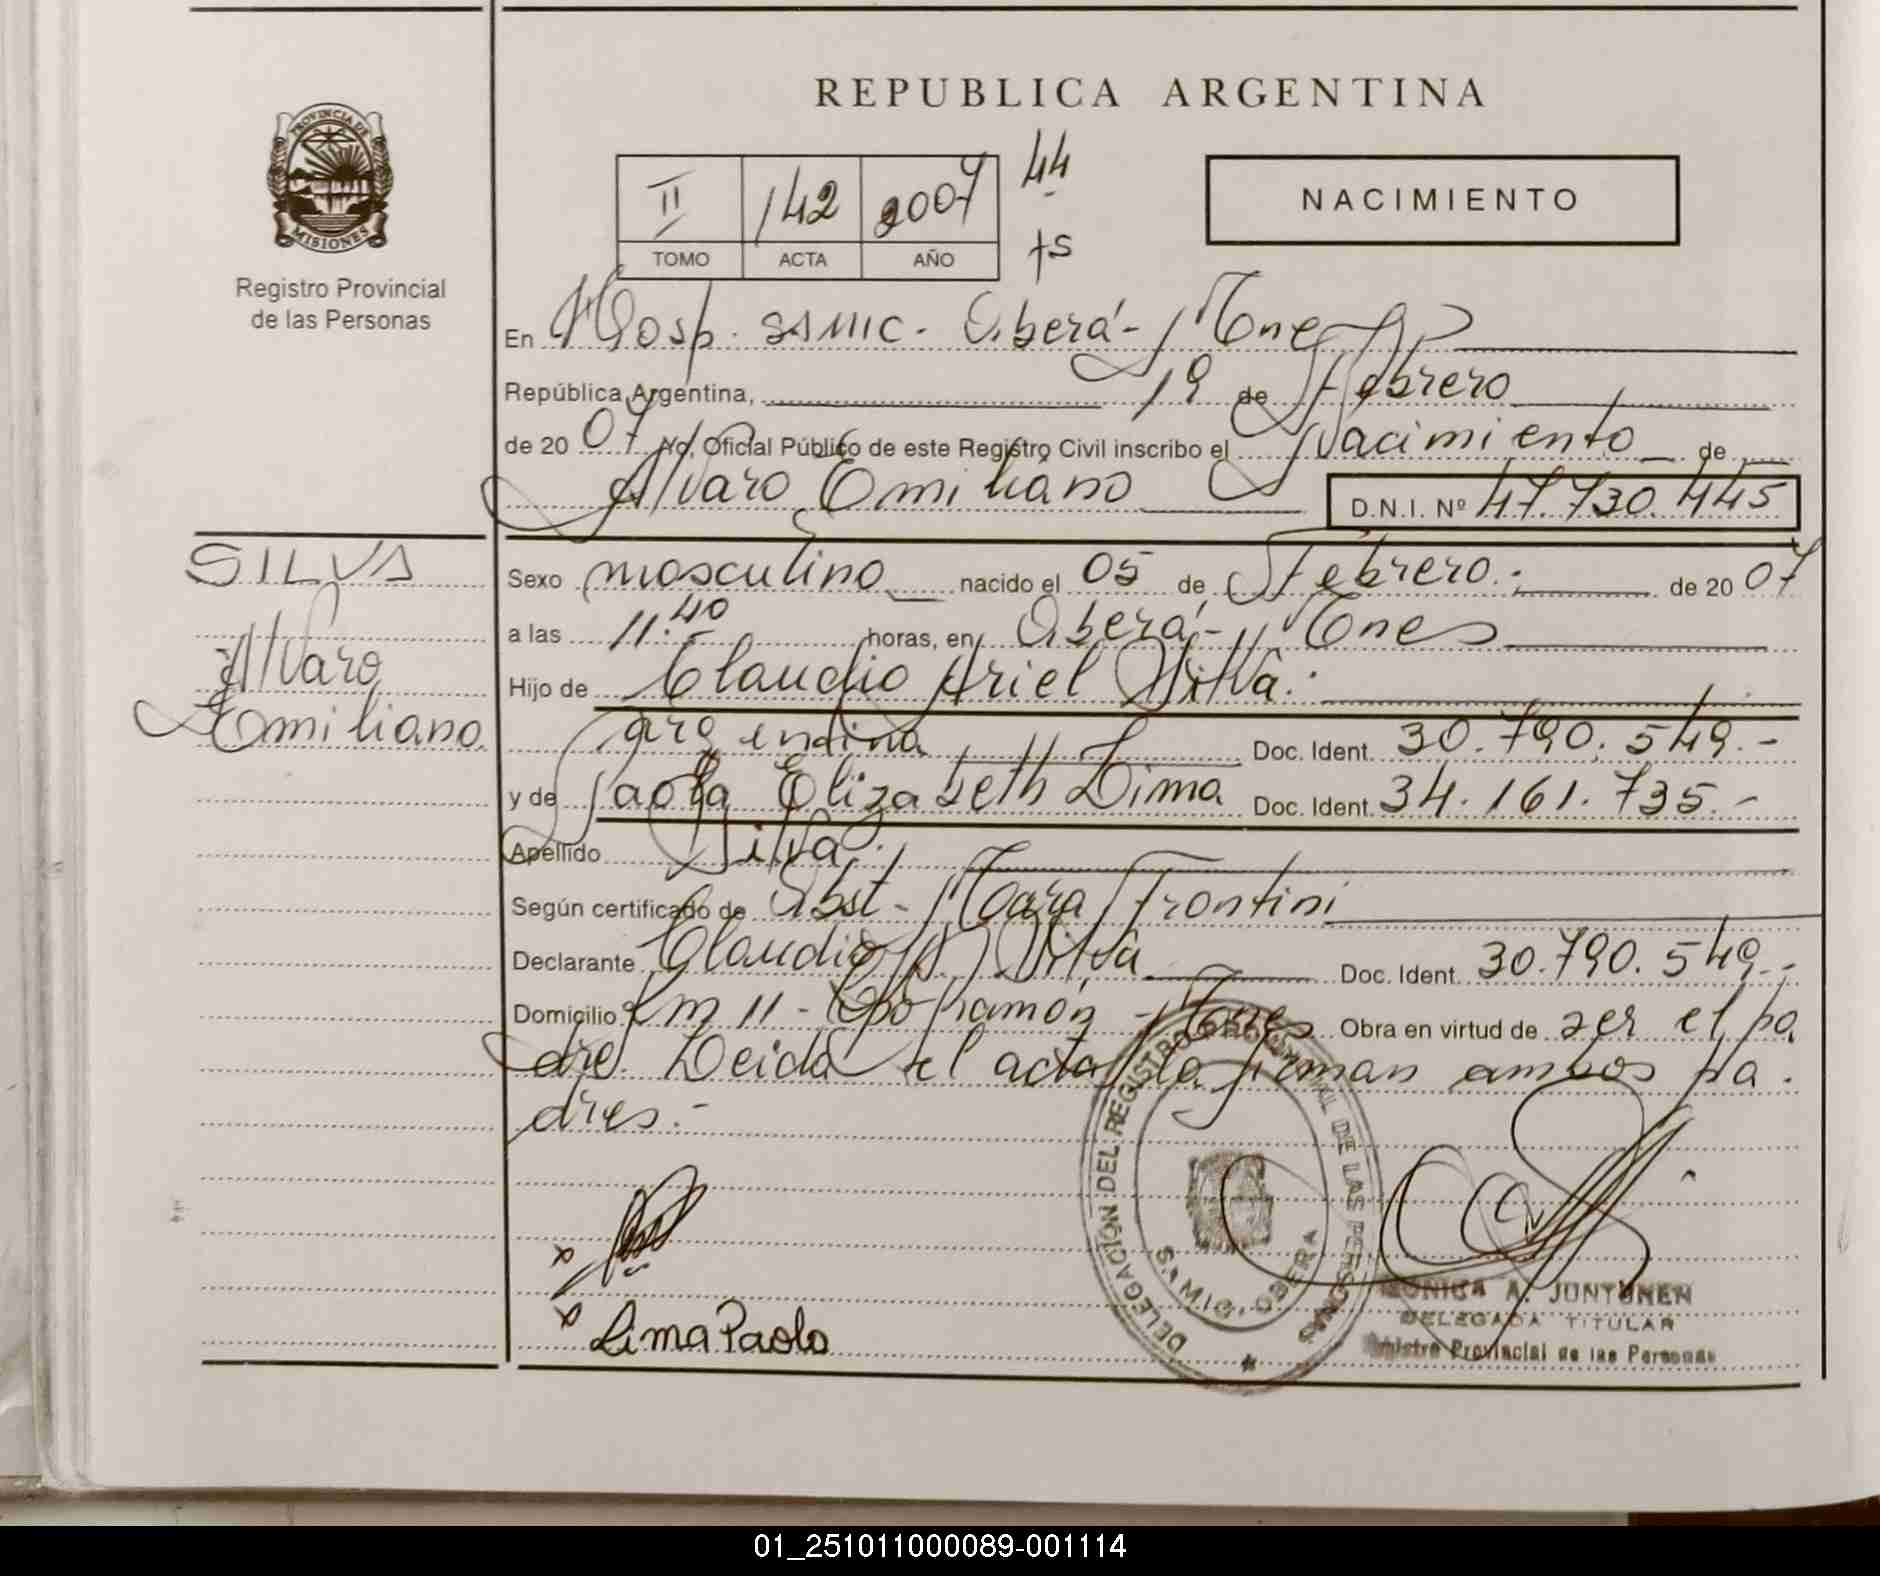 REPUBLICA ARGENTINA
PROVINCIA DE MISIONES
Registro Provincial
de las Personas
II 142 2007 44
TOMO ACTA AÑO
NACIMIENTO
En Hosp. SAMIC - Oberá - Mnes
República Argentina, 19 de Febrero
de 2007 Yo, Oficial Público de este Registro Civil inscribo el Nacimiento de
Alvaro Emiliano D.N.I. Nº 47.730.445
SILVA
Alvaro
Emiliano
Sexo masculino nacido el 05 de Febrero.- de 2007
a las 11:40 horas, en Oberá - Mnes
Hijo de Claudio Ariel Silva.-
argentina Doc. Ident. 30.790.549.-
y de Paola Elizabeth Lima Doc. Ident. 34.161.735.-
Apellido Silva.
Según certificado de Obst - Mara Frontini
Declarante Claudio A. Silva Doc. Ident. 30.790.549.-
Domicilio Km 11 - Cpo Ramón - Mnes Obra en virtud de ser el pa
dre. Leida el acta la firman ambos pa.
dres.-
Lima Paola
DELEGACIÓN DEL REGISTRO PROVINCIAL DE LAS PERSONAS
OBERA
MONICA A. JUNTUNEN
DELEGADA TITULAR
Registro Provincial de las Personas
01_251011000089-001114